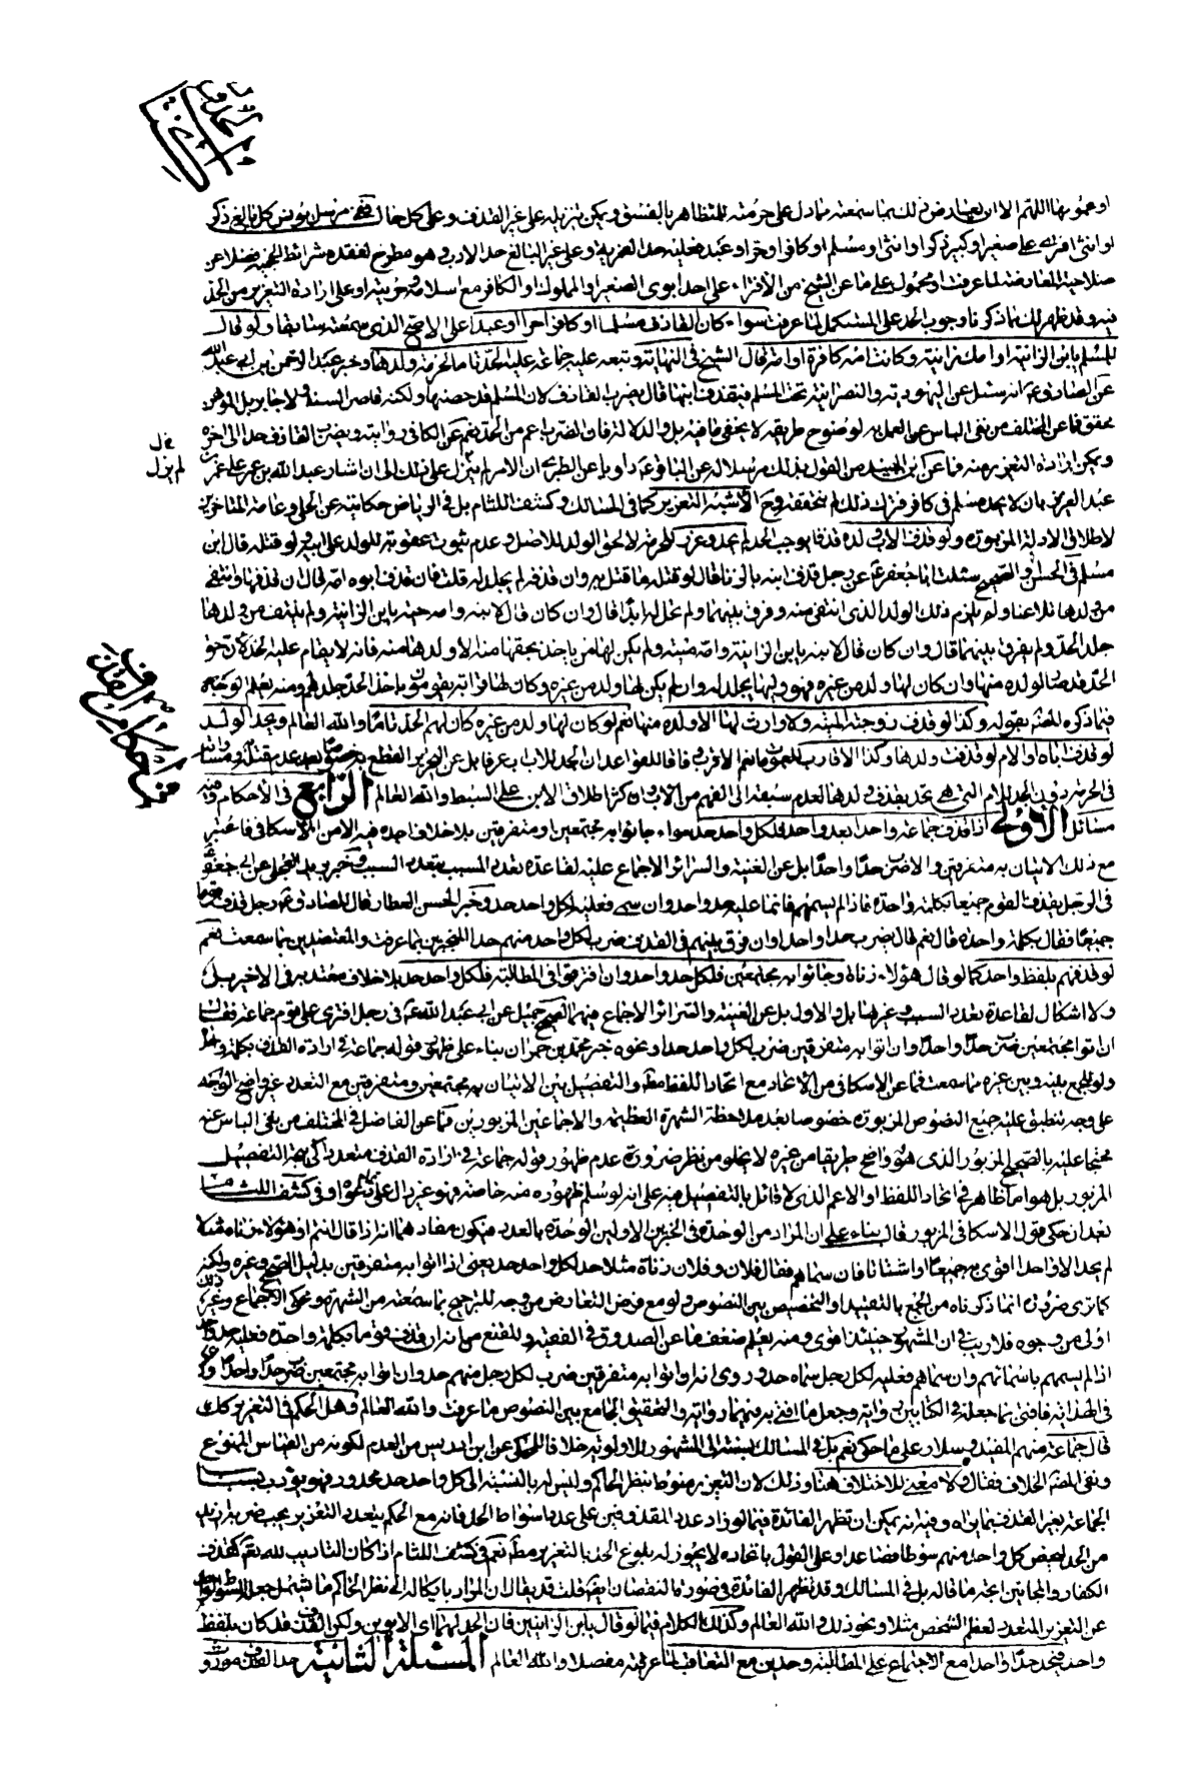 او عمومها اللهم الا ان يعارض ذلك بما سمعته مما دل على حرمته للمتظاهر بالفسق ويمكن تنزيله على غير القذف وعلى كل حال ففى مرسل يونس كل بالغ ذكر
او انثى افترى على صغير او كبير ذكر او انثى او مسلم او كافر او حر او عبد فعليه حد الفرية وعلى غير البالغ حد الادب وهو مطرح لفقده شرائط الحجية فضلا عن
صلاحية المعارضة لما عرفت او محمول على ما عن الشيخ من الافتراء على احد ابوى الصغير او المملوك او الكافر مع اسلامه وحريته او على ارادة التعزير من الحد
فيه وقد ظهر لك مما ذكرنا وجوب الحد على المستكمل لما عرفت سواء كان القاذف مسلما او كافرا حرا او عبدا على الاصح الذى سمعته سابقا ولو قال
للمسلم يابن الزانية او امك زانية وكانت امه كافرة او امة قال الشيخ فى النهاية وتبعه عليه جماعة عليه الحد تاما لحرمة ولدها وخبر عبد الرحمن بن ابى عبد الله
عن الصادق ع انه سئل عن اليهودية والنصرانية تحت المسلم فيقذف ابنها قال يضرب القاذف لان المسلم قد حصنها ولكنه قاصر السند ولا جابر بل الموهن
محقق فما عن المختلف من نفى الباس عن العمل به لوضوح طريقه لا يخفى ما فيه بل والدلالة فان الضرب اعم من الحد نعم عن الكافى روايته ويضرب القاذف حدا الى اخره
ويمكن ارادة التعزير منه فما عن ابن الجنيد من القول بذلك مرسلا له عن الباقر ع
لم يزل
عبد العزيز بان لا يحد مسلم فى كافر فترك ذلك لم نتحققه وح الاشبه التعزير كما فى المسالك وكشف اللثام بل فى الرياض حكايته عن الحلى وعامة المتاخرين
لاطلاق الادلة المزبورة ولو قذف الاب ولده قذفا يوجب الحد لم يحد وعزر للحرمة لا لحق الولد للاصل وعدم ثبوت عقوبة للولد على ابيه ولو قتله قال ابن
مسلم فى الحسن او الصحيح سئلت ابا جعفر ع عن رجل قذف ابنه بالزنا فقال لو قتله ما قتل به وان قذفه لم يجلد له قلت فان قذف ابوه امه قال ان قذفها وانتفى
من ولدها تلاعنا ولم يلزم ذلك الولد الذى انتفى منه وفرق بينهما ولم تحل له ابدا قال وان كان قال لابنه وامه حية يابن الزانية ولم ينتف من ولدها
جلد الحد ولم يفرق بينهما قال وان كان قال لابنه يابن الزانية وامه ميتة ولم يكن لها من ياخذ بحقها منه الا ولدها منه فانه لا يقام عليه الحد لان حق
الحد قد صار لولده منها وان كان لها ولد من غيره فهو وليها يجلد له وان لم يكن لها ولد من غيره وكان لها قرابة يقومون باخذ الحد جلد لهم ومنه يعلم الوجه
فيما ذكره المصنف بقوله وكذا لو قذف زوجته الميتة ولا وارث لها الا ولده منها نعم لو كان لها ولد من غيره كان لهم الحد تاما والله العالم ويحد الولد
لو قذف اباه او الام لو قذفت ولدها وكذا الاقارب للعموم
فى الحرمة دون الجد للام
مسائل الاولى اذا قذف جماعة واحدا بعد واحد فلكل واحد حد سواء جاؤا به مجتمعين او متفرقين بلا خلاف اجده فيه الا من الاسكافى فاعتبر
الرابع فى الاحكام وفيه
فى احكام القذف
مع ذلك الاتيان به متفرقين والا ضرب حدا واحدا بل عن الغنية والسرائر الاجماع عليه لقاعدة تعدد المسبب بتعدد السبب
فى الرجل يقذف القوم جميعا بكلمة واحدة فاذا لم يسمهم فانما عليه حد واحد وان سمى فعليه لكل واحد حد وخبر الحسن العطار قال للصادق ع رجل قذف قوما
جميعا فقال بكلمة واحدة قال نعم قال يضرب حدا واحدا وان فرق بينهم فى القذف ضرب لكل واحد منهم حدا المنجبرين بما عرفت والمعتضدين بما سمعت نعم
لو قذفهم بلفظ واحد كما لو قال هؤلاء زناة وجاؤا به مجتمعين فللكل حد واحد وان افترقوا فى المطالبة فلكل واحد حد بلا خلاف معتد به فى الاخير بل
ولا اشكال لقاعدة تعدد السبب وغيرها بل والاول بل عن الغنية والسرائر الاجماع فيهما لصحيح جميل عن ابى عبد الله ع فى رجل افترى على قوم جماعة فقال
ان اتوا مجتمعين ضرب حدا واحدا وان اتوا به متفرقين ضرب لكل واحد حدا ونحوه خبر محمد بن حمران بناء على ظهور قوله جماعة فى ارادة القذف بكلمة واحدة
ولو للجمع بينه وبين غيره مما سمعت فما عن الاسكافى من الاتحاد مع اتحاد اللفظ مط والتفصيل بين الاتيان به مجتمعين ومتفرقين مع التعدد غير واضح الوجه
على وجه تنطبق عليه جميع النصوص المزبورة خصوصا بعد ملاحظة الشهرة العظيمة والاجماعين المزبورين فما عن الفاضل فى المختلف من نفى الباس عنه
محتجا عليه بالصحيح المزبور الذى هو اوضح طريقا من غيره لا يخلو من نظر ضرورة عدم ظهور قوله جماعة فى ارادة القذف متعددا كى يتجه التفصيل
المزبور بل هو اما ظاهر فى اتحاد اللفظ او الاعم الذى لا قائل بالتفصيل فيه على انه لو سلم ظهوره منه خاصة فهو غير دال على تمام دعواه وفى كشف اللثام
بعد ان حكى قول الاسكافى المزبور قال بناء على ان المراد من الوحدة فى الخبرين الاولين الوحدة بالعدد فيكون مفادهما انه اذا قال انتم او هؤلاء زناة مثلا
لم يحد الا حدا واحدا اتوا به جميعا او اشتاتا فان سماهم فقال فلان وفلان وفلان زناة مثلا حد لكل واحد حد يعنى اذا اتوا به متفرقين بدليل الصحيح وغيره ولكنه
كما ترى ضرورة ان ما ذكرناه من الجمع بالتقييد او التخصيص بين النصوص ولو مع فرض التعارض من وجه للترجيح بما سمعته من الشهرة ومحكى الاجماع وغير ذلك
اولى من وجوه فلا ريب فى ان المشهور ح اقوى ومنه يعلم ضعف ما عن الصدوق فى الفقيه والمقنع من انه ان قذف قوما بكلمة واحدة فعليه حد واحد
اذا لم يسمهم باسمائهم وان سماهم فعليه لكل رجل سماه حد وروى انه ان اتوا به متفرقين ضرب لكل رجل منهم حد وان اتوا به مجتمعين ضرب حدا واحدا
فى الهداية فافتى بما جعله فى الكتابين رواية وجعل ما افتى به فيهما رواية والتحقيق الجامع بين النصوص ما عرفت والله العالم وهل الحكم فى التعزير كك
قال جماعة منهم المفيد وسلار على ما حكى نعم بل فى المسالك نسبته الى المشهور للاولوية خلافا للمحكى عن ابن ادريس من العدم لكونه من القياس الممنوع
ونفى المصنف الخلاف فقال ولا معنى للاختلاف هنا وذلك لان التعزير منوط بنظر الحاكم وليس له بالنسبة الى كل واحد حد محدود فهو يؤدب بسب
الجماعة بغير القذف بما يراه وفيه انه يمكن ان تظهر الفائدة فيما لو زاد عدد المقذوفين على عدد اسواط الحد فانه مع الحكم بتعدد التعزير يجب ضربه ازيد
من الحد ليخص كل واحد منهم سوطا فصاعدا وعلى القول باتحاده لا يجوز له بلوغ الحد بالتعزير مط نعم فى كشف اللثام اذا كان التاديب لله تعالى كقذف
الكفار والمجانين اتجه ما قاله بل فى المسالك وقد تظهر الفائدة فى صورة النقصان ايضا قلت قد يقال ان المراد بايكاله الى نظر الحاكم ما يشمل جعل السوط
عن التعزير المتعدد لعظم الشخص مثلا ونحو ذلك والله العالم وكذلك الكلام فيما لو قال يابن الزانيين فان الحد لهما اى الابوين ولكن القذف قد كان بلفظ
واحد فيحد حدا واحدا مع الاجتماع على المطالبة وحدين مع التعاقب لما عرفته مفصلا والله العالم المسئلة الثانية حد القذف موروث